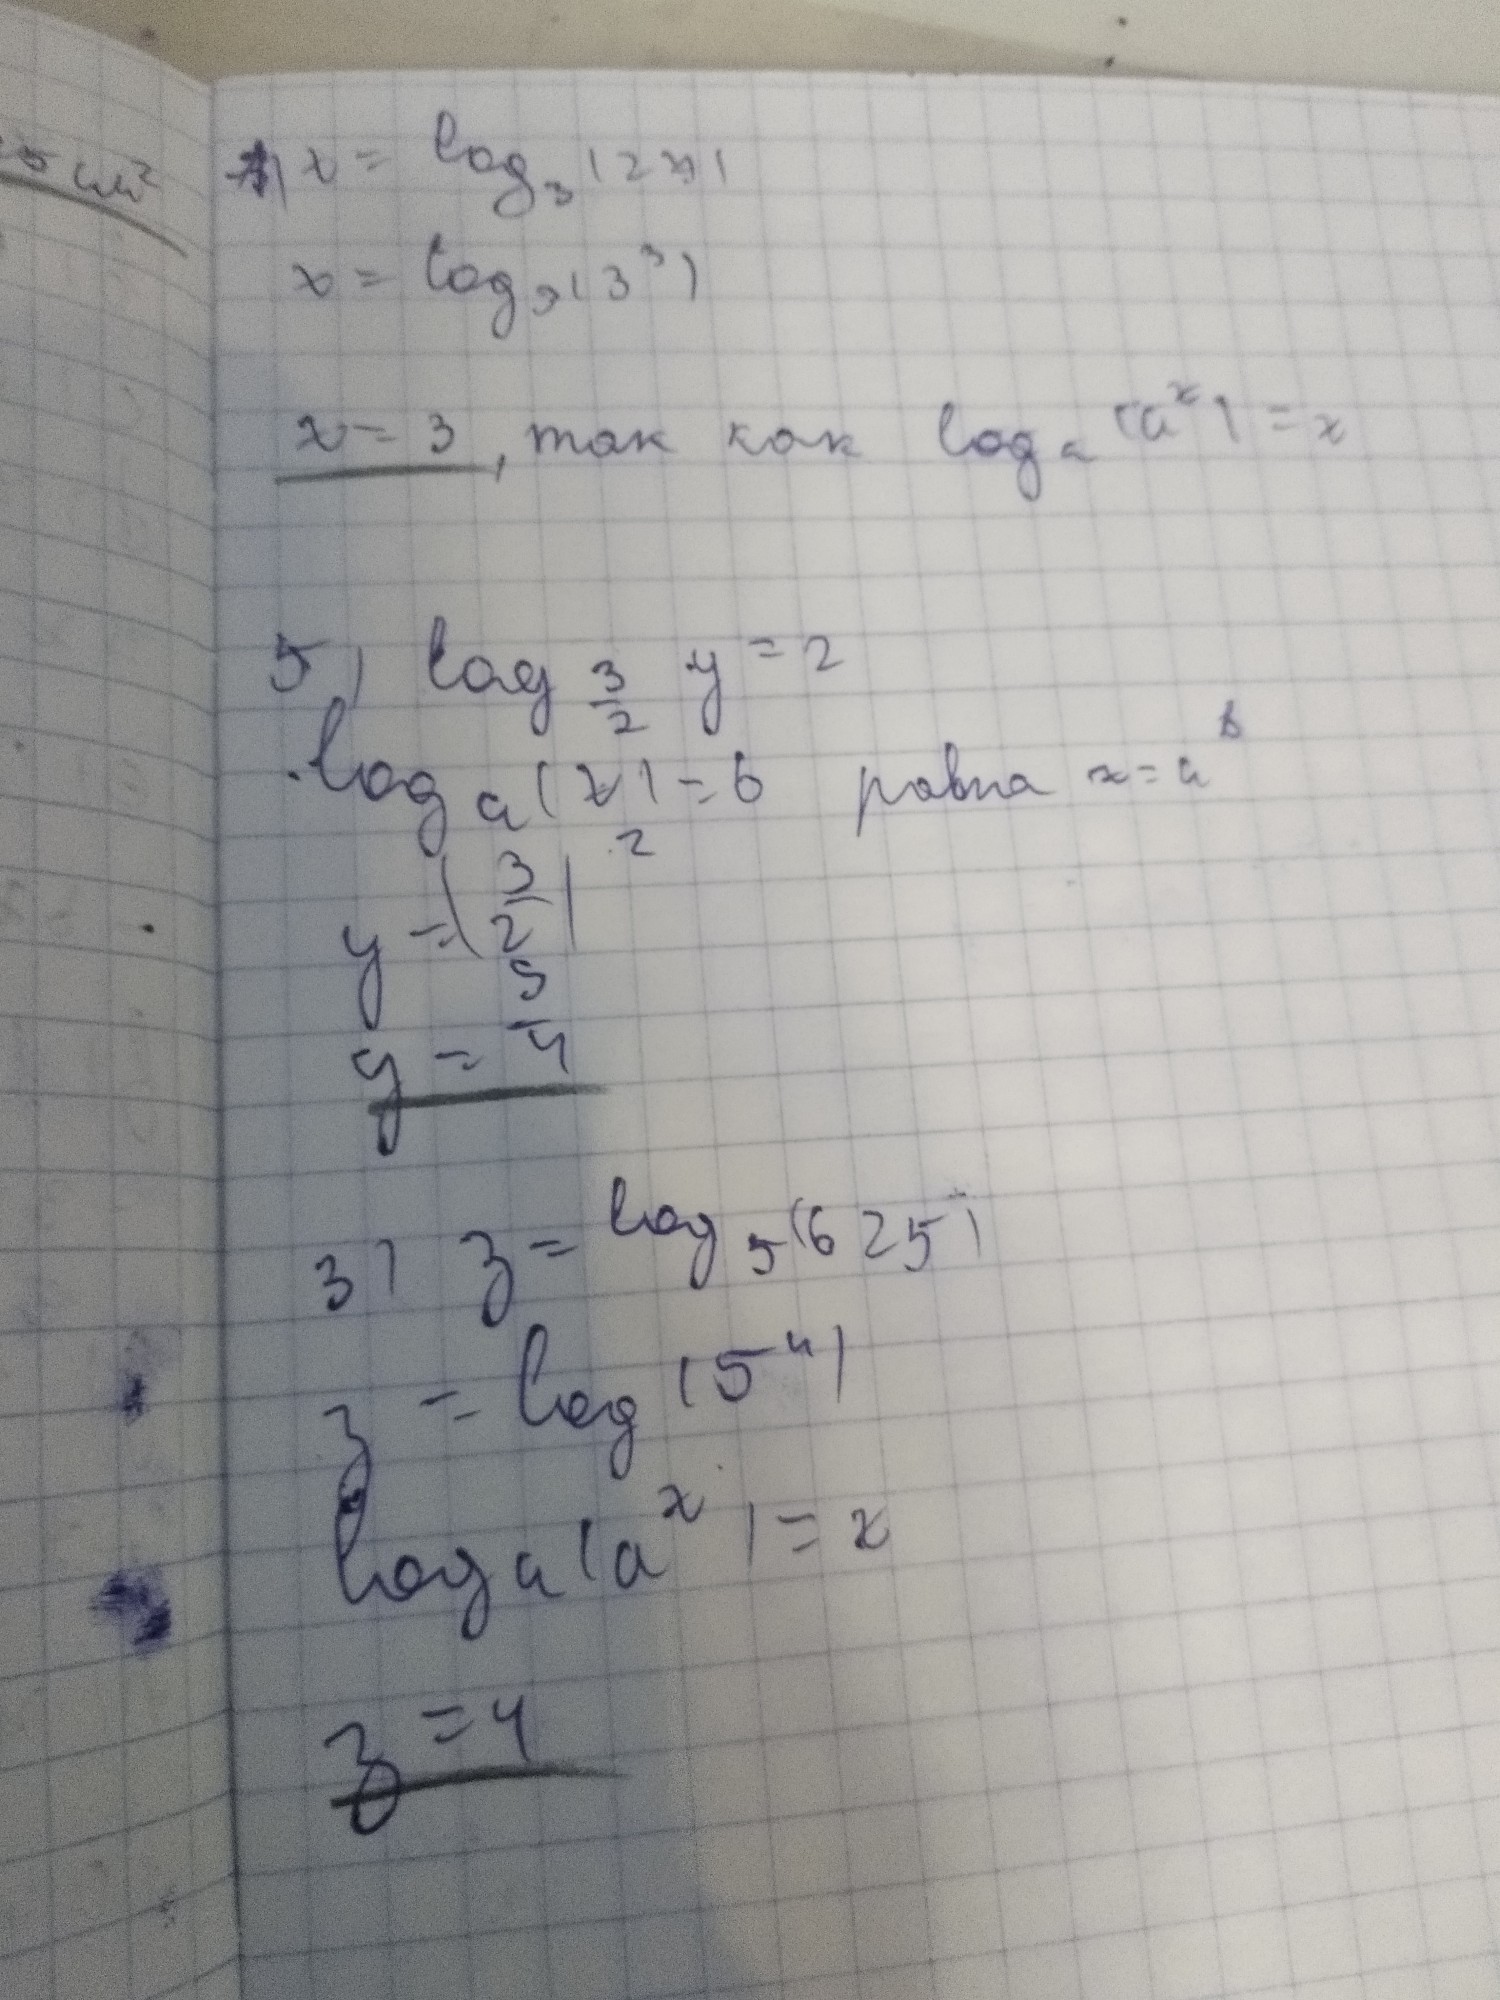 5 см²
1) x = log₃(27)
x = log₃(3³)
x = 3, так как logₐ(aˣ) = x
5) log 3/2 y = 2
logₐ(x) = b равна x = aᵇ
y = (3/2)²
y = 9/4
3) z = log₅(625)
z = log(5⁴)
logₐ(aˣ) = x
z = 4